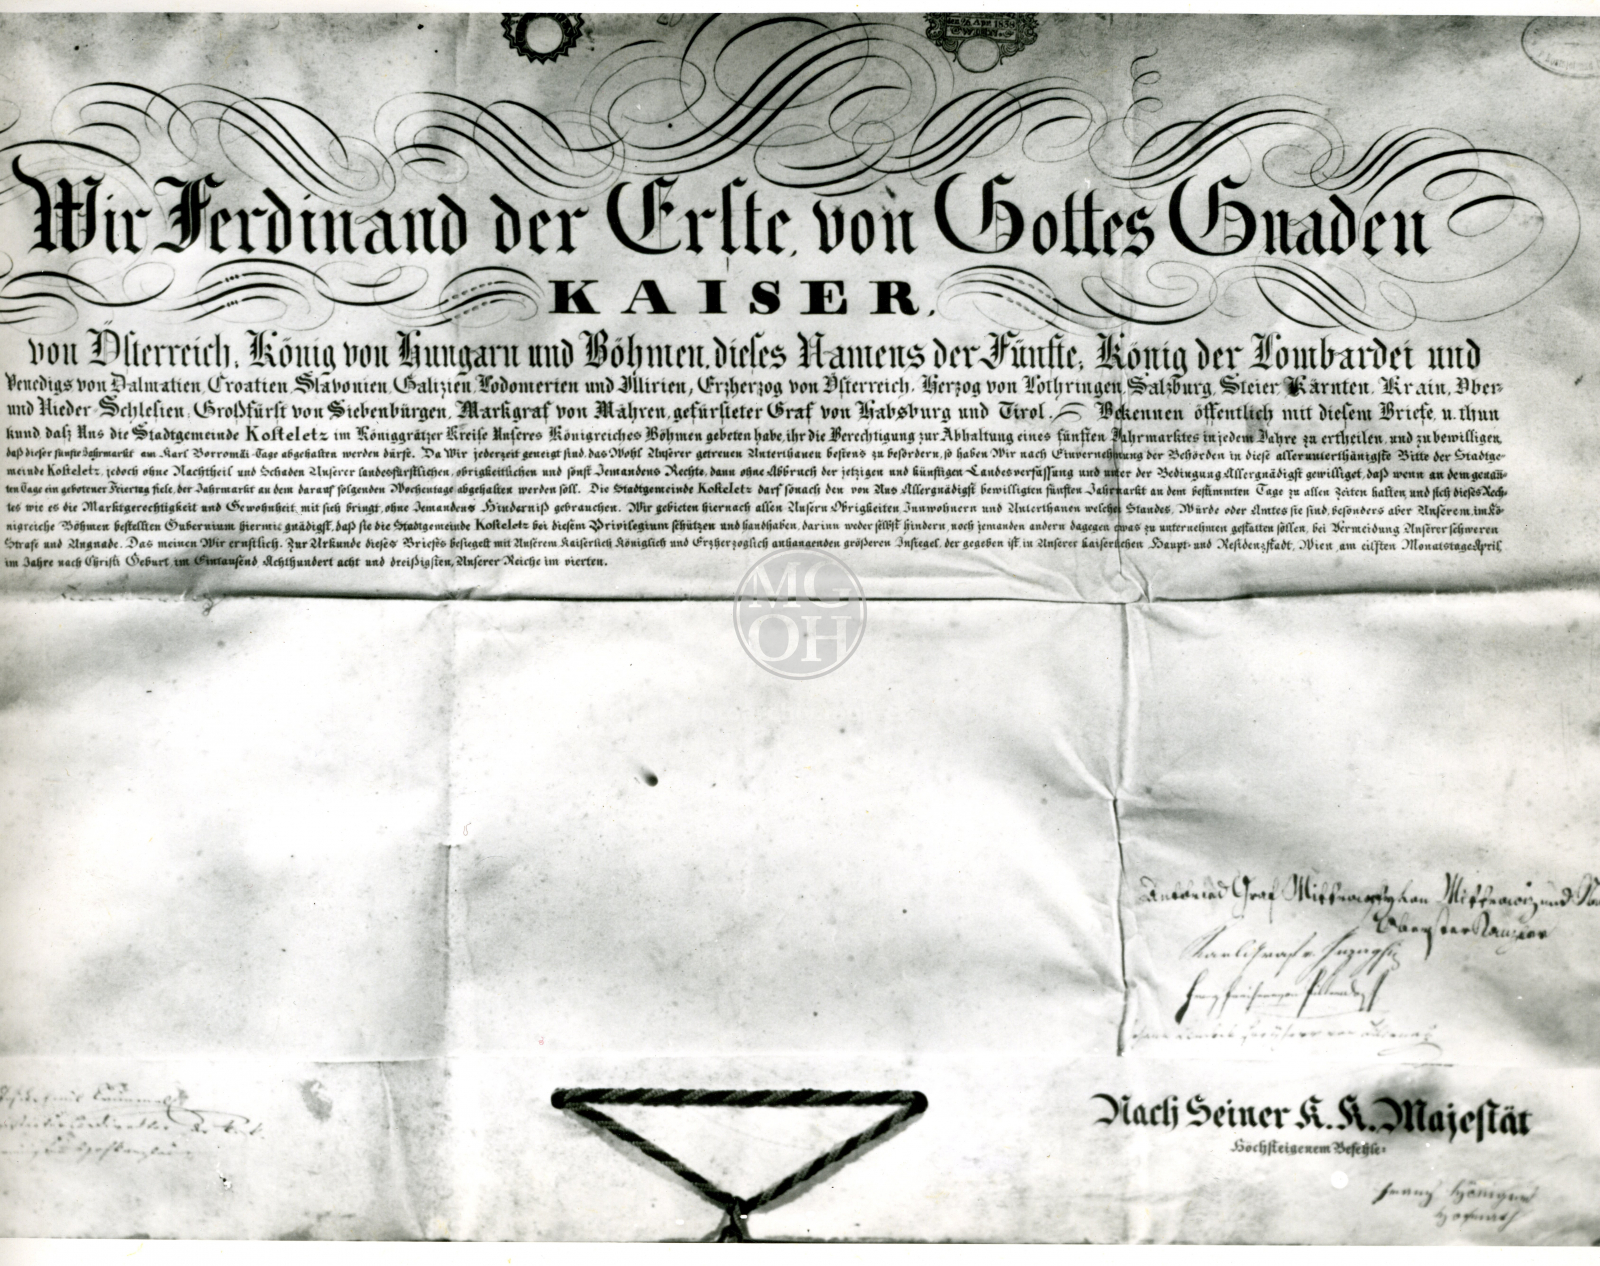 den 28 Apr. 1838
Wir Ferdinand der Erste, von Gottes Gnaden
KAISER,
von Österreich, König von Hungarn und Böhmen, dieses Namens der Fünfte, König der Lombardei und
Venedigs von Dalmatien, Croatien, Slavonien, Galizien, Lodomerien und Illirien, Erzherzog von Österreich, Herzog von Lothringen, Salzburg, Steier, Kärnten, Krain, Ober-
und Nieder-Schlesien, Großfürst von Siebenbürgen, Markgraf von Mähren, gefürsteter Graf von Habsburg und Tirol. Bekennen öffentlich mit diesem Briefe, u. thun
kund, daß Uns die Stadtgemeinde Kosteletz im Königgrätzer Kreise Unseres Königreiches Böhmen gebeten habe, ihr die Berechtigung zur Abhaltung eines fünften Jahrmarktes in jedem Jahre zu ertheilen, und zu bewilligen,
daß dieser fünfte Jahrmarkt am Karl Borromäi-Tage abgehalten werden dürfe. Da Wir jederzeit geneigt sind, das Wohl Unserer getreuen Unterthanen bestens zu befördern, so haben Wir nach Einvernehmung der Behörden in diese allerunterthänigste Bitte der Stadtge-
meinde Kosteletz, jedoch ohne Nachtheil und Schaden Unserer landesfürstlichen, obrigkeitlichen und sonst Jemandens Rechte, dann ohne Abbruch der jetzigen und künftigen Landesverfassung und unter der Bedingung Allergnädigst gewilliget, daß wenn an dem genan-
ten Tage ein gebotener Feiertag fiele, der Jahrmarkt an dem darauf folgenden Wochentage abgehalten werden soll. Die Stadtgemeinde Kosteletz darf sonach den von Uns Allergnädigst bewilligten fünften Jahrmarkt an dem bestimmten Tage zu allen Zeiten halten, und sich dieses Rech-
tes wie es die Marktgerechtigkeit und Gewohnheit mit sich bringt, ohne Jemandens Hinderniß gebrauchen. Wir gebieten hiernach allen Unsern Obrigkeiten Innwohnern und Unterthanen welches Standes, Würde oder Amtes sie sind, besonders aber Unserem, im Kö-
nigreiche Böhmen bestellten Gubernium hiermit gnädigst, daß sie die Stadtgemeinde Kosteletz bei diesem Privilegium schützen und handhaben, darinn weder selbst hindern, noch jemanden andern dagegen etwas zu unternehmen gestatten sollen, bei Vermeidung Unserer schweren
Strafe und Ungnade. Das meinen Wir ernstlich. Zur Urkunde dieses Briefes besiegelt mit Unserem Kaiserlich Königlich und Erzherzoglich anhangenden größeren Insiegel, der gegeben ist in Unserer kaiserlichen Haupt- und Residenzstadt, Wien am eilften Monatstage April
im Jahre nach Christi Geburt im Eintausend Achthundert acht und dreißigsten, Unserer Reiche im vierten.
MG
OH
Graf Mittrowsky von Mittrowitz und
Oberster Kanzler
Karl Graf v. Inzaghi
Nach Seiner K. K. Majestät
Höchsteigenem Befehle:
Franz
Hofrath